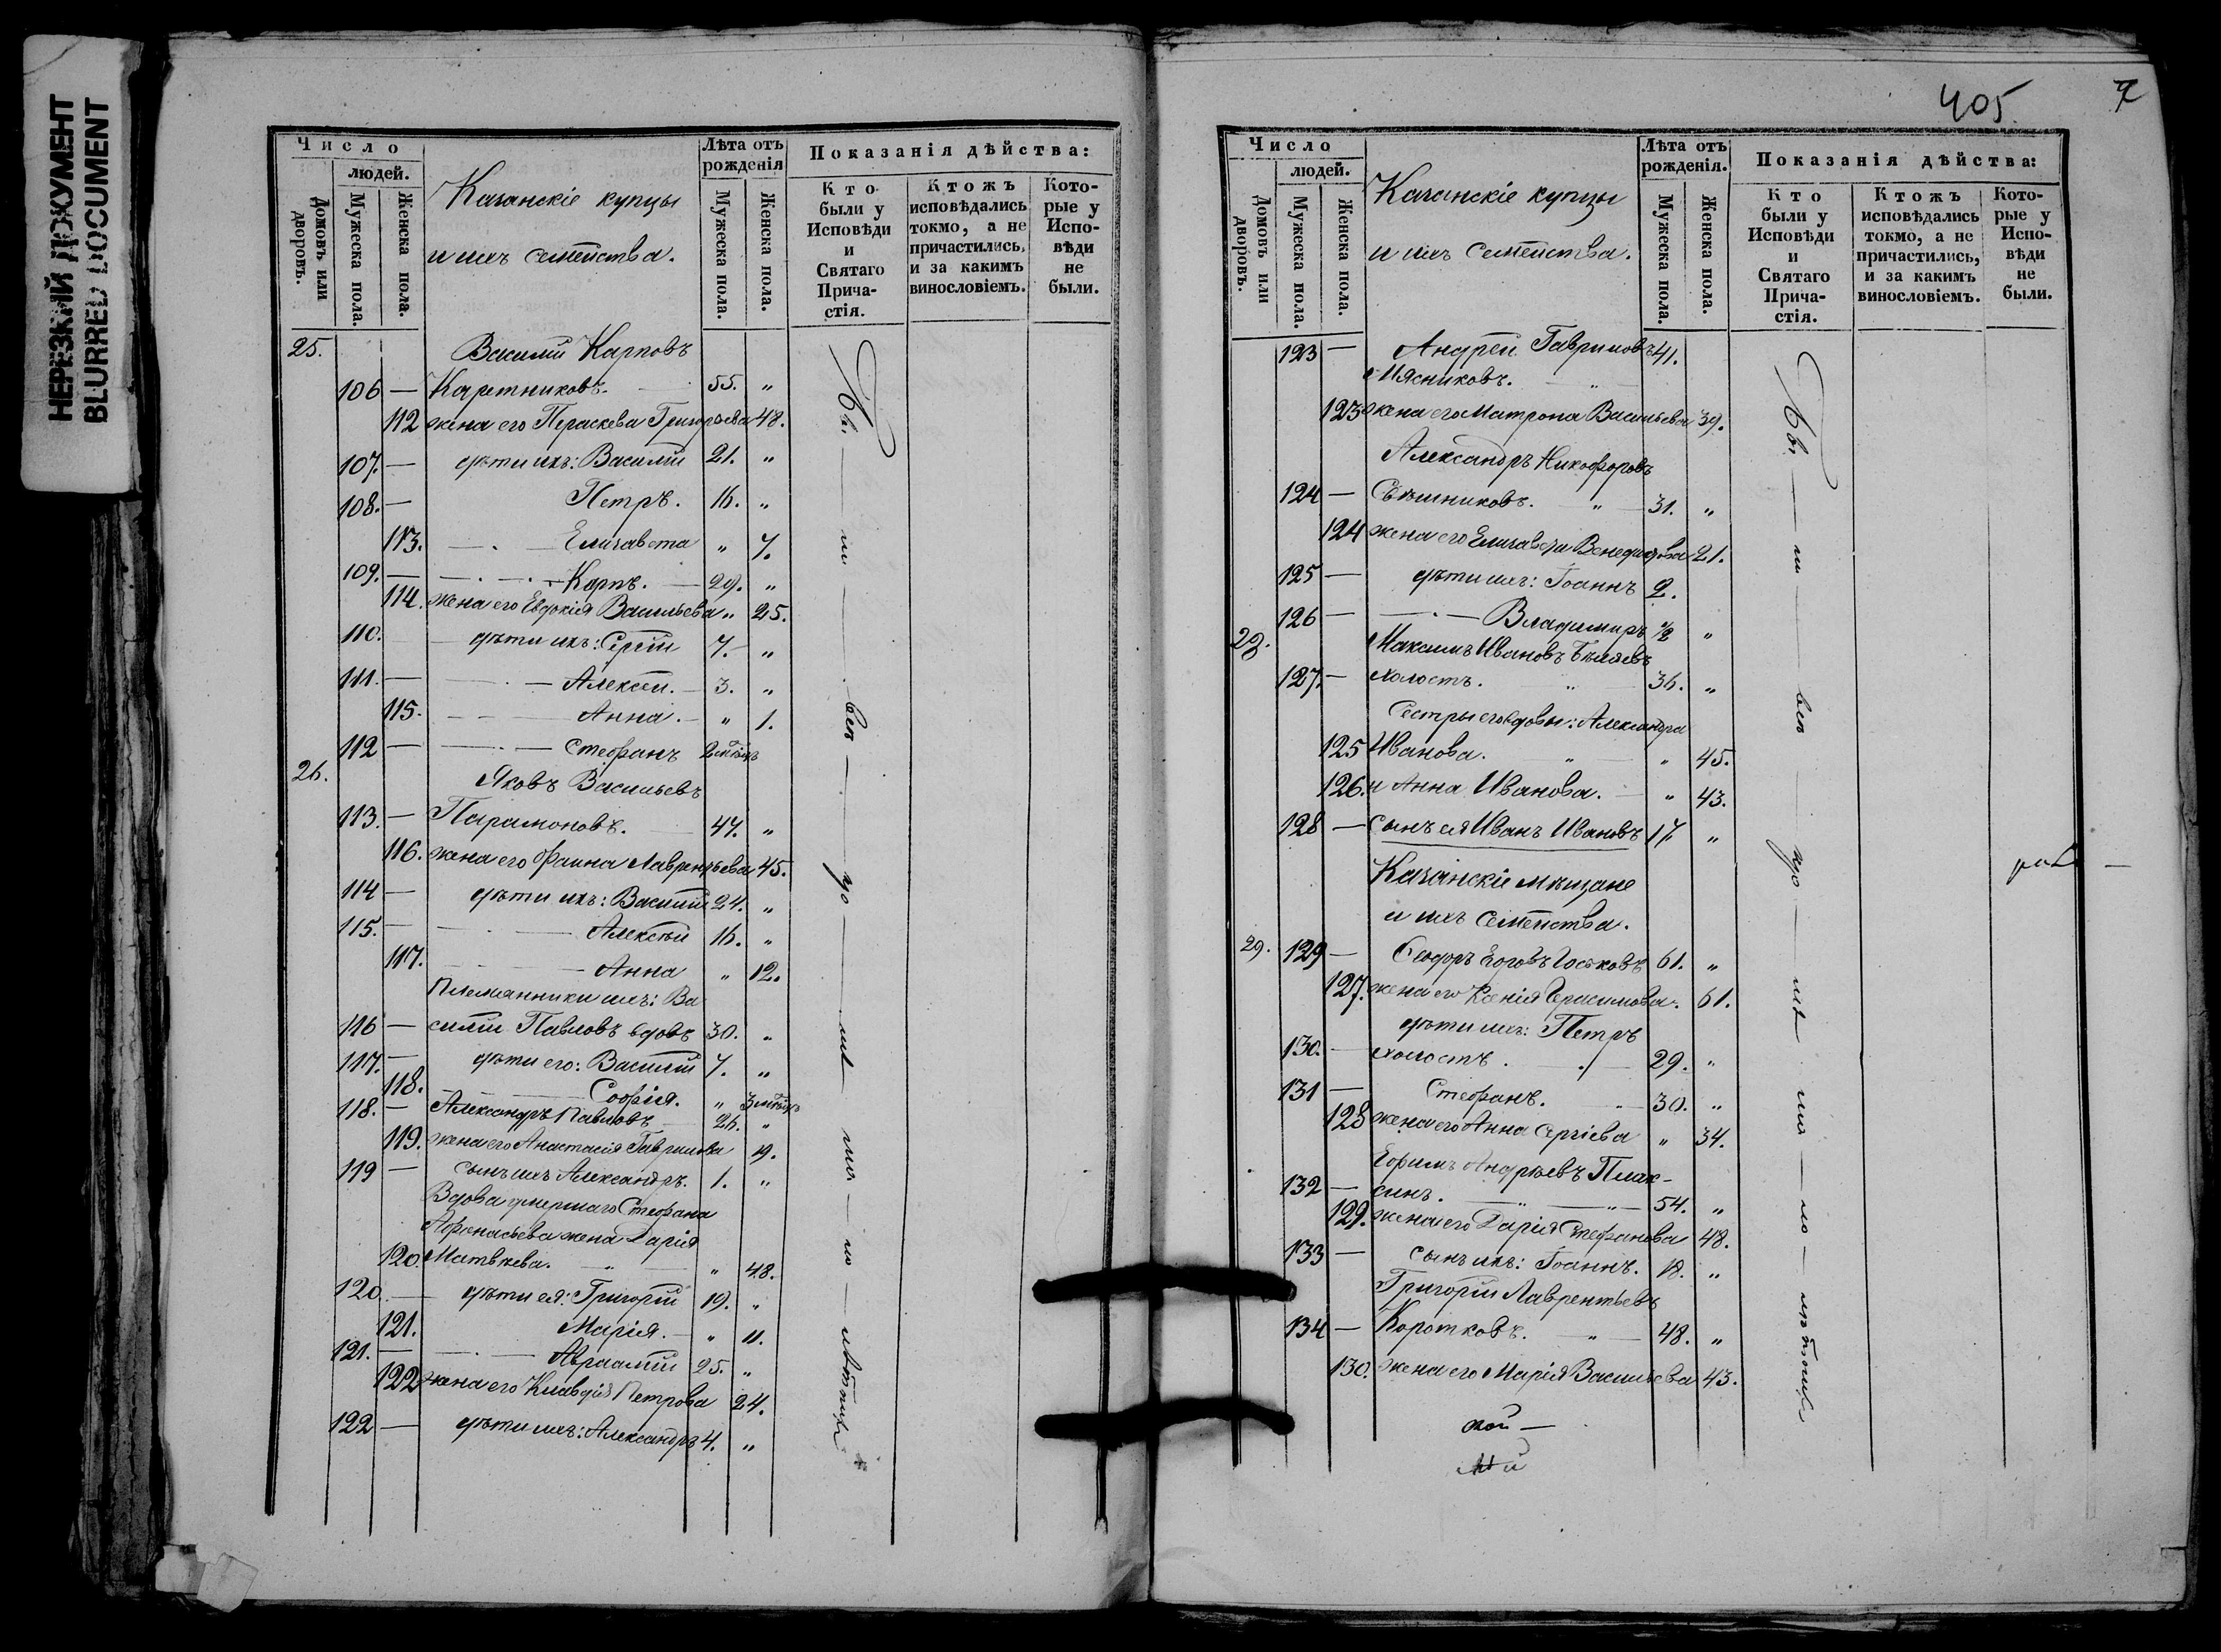 НЕРЕЗКИЙ ДОКУМЕНТ
BLURRED DOCUMENT
Число
людей.
Домовъ или дворовъ.
Мужеска пола.
Женска пола.
Казанскіе купцы
и ихъ семейства.
Лѣта отъ рожденія
Мужеска пола.
Женска пола.
Показанія дѣйства:
Кто были у Исповѣди и Святаго Прича-стія.
Ктожъ исповѣдались токмо, а не причастились, и за какимъ винословіемъ.
Кото-рые у Испо-вѣди не были.
25. Василій Карповъ
106 — Каретниковъ. 55. „
112 жена его Параскева Григорьева 48.
107. — дѣти ихъ: Василій 21. „
108. — Петръ. 16. „
113. Елизавета „ 7.
109. — Карпъ. 29. „
114. жена его Евдокія Васильева „ 25.
110. дѣти ихъ: Сергій 7. „
111. — Алексѣй. 3. „
115. Анна. „ 1.
112 — Стефанъ 2 мѣсяц
26. Яковъ Васильевъ
113. — Парамоновъ. 47. „
116. жена его Фаина Лаврентьева 45.
114 — дѣти ихъ: Василій 24. „
115. — Алексѣй 16. „
117. Анна „ 12.
Племянники ихъ: Ва
116 — силій Павловъ вдовъ 30. „
117. — дѣти его: Василій 7. „
118. Софія. „ 3 мѣсяц
118. — Александръ Павловъ 26. „
119. жена его Анастасія Гаврилова 19.
119 — сынъ ихъ Александръ. 1. „
Вдова умершаго Стефана
Афанасьева жена Дарія
120. Матвѣева. „ „ 48.
120. — дѣти ея: Григорій 19. „
121. Марія. „ 11.
121. — Авраамій 25. „
122 жена его Клавдія Петрова 24.
122 — дѣти ихъ: Александръ 4. „
405. 7
Число
людей.
Домовъ или дворовъ.
Мужеска пола.
Женска пола.
Казанскіе купцы
и ихъ семейства.
Лѣта отъ рожденія.
Мужеска пола.
Женска пола.
Показанія дѣйства:
Кто были у Исповѣди и Святаго Прича-стія.
Ктожъ исповѣдались токмо, а не причастились, и за какимъ винословіемъ.
Кото-рые у Испо-вѣди не были.
123 — Андрей Гавриловъ 41.
Мясниковъ. „
123 жена его Матрона Васильева 39.
Александръ Никифоровъ
124 — Свѣшниковъ. „ 31. „
124 жена его Елизавета Венедиктова 21.
125 — дѣти ихъ: Іоаннъ 2.
126 — Владимиръ 1/2 „
28. Максимъ Ивановъ Бѣляевъ
127. — холостъ. „ 36. „
Сестры его вдовы: Александра
125 Иванова. „ „ 45.
126. и Анна Иванова. „ 43.
128 — сынъ ея Иванъ Ивановъ 17. „
Казанскіе мѣщане
и ихъ семейства.
29. 129 — Ѳеодоръ 61. „
127. жена его Ксенія Герасимова. 61.
дѣти ихъ: Петръ
130. — холостъ. 29. „
131 — Стефанъ. 30. „
128 жена его Анна Сергіева „ 34.
Ефимъ Андреевъ Плак-
132 — синъ. „ „ 54. „
129. жена его Дарія Стефанова 48.
133 — сынъ ихъ: Іоаннъ. 18. „
Григорій Лаврентьевъ
134 — Коротковъ. „ 48. „
130. жена его Марія Васильева 43.